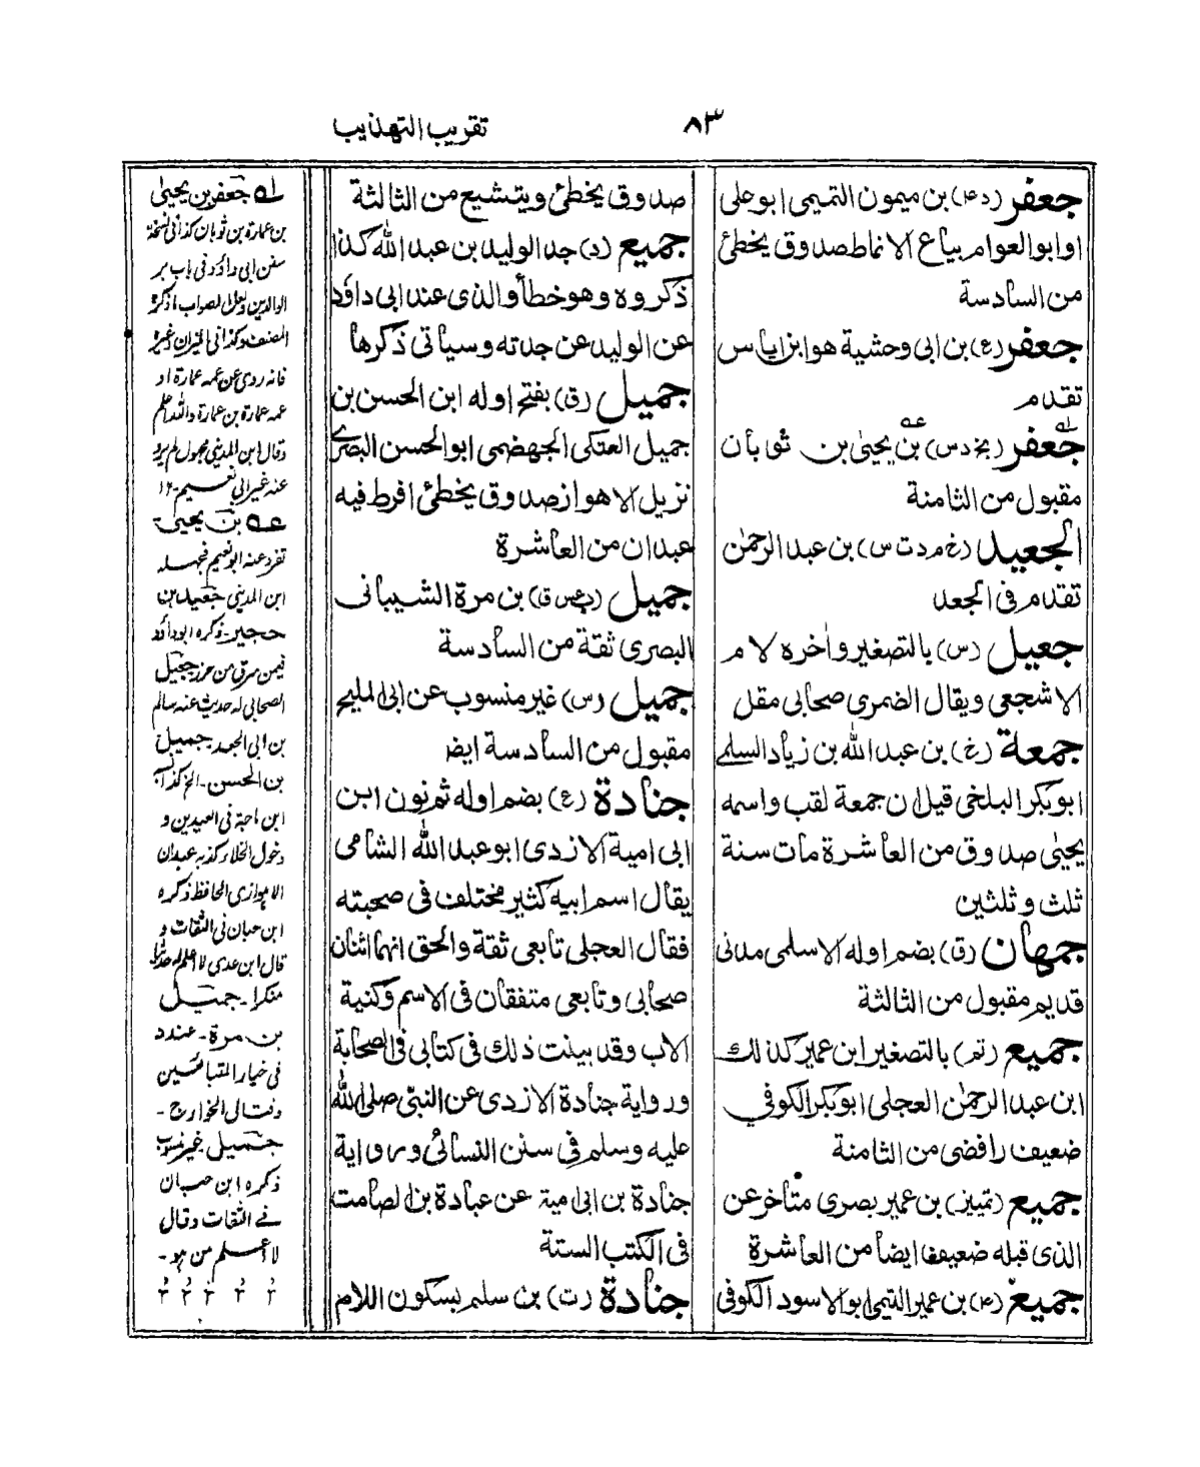 ٨٣
تقريب التهذيب
جعفر (د ع) بن ميمون التميمى ابو على
او ابو العوام بياع الانماط صدوق يخطئ
من السادسة
جعفر (ع) بن ابى وحشية هو ابن اياس
تقدم
جعفر (بخ د س) بن يحيىٰ بن ثوبان
مقبول من الثامنة
الجعيد (خ م د ت س) بن عبد الرحمٰن
تقدم فى الجعد
جعيل (س) بالتصغير واٰخره لام
الاشجعى ويقال الضمرى صحابى مقل
جمعة (خ) بن عبد الله بن زياد السلمى
ابو بكر البلخى قيل ان جمعة لقب واسمه
يحيىٰ صدوق من العاشرة مات سنة
ثلث و ثلثين
جمهان (ق) بضم اوله الاسلمى مدنى
قديم مقبول من الثالثة
جميع (تم) بالتصغير ابن عمير كذلك
ابن عبد الرحمٰن العجلى ابو بكر الكوفي
ضعيف رافضى من الثامنة
جميع (تميز) بن عمير بصرى متأخر عن
الذى قبله ضعيف ايضا من العاشرة
جميع (ع) بن عمير التيمى ابو الاسود الكوفى
صدوق يخطئ ويتشيع من الثالثة
جميع (د) جد الوليد بن عبد الله كذا
ذكروه وهو خطأ والذى عند ابى داؤد
عن الوليد عن جدته وسياتى ذكرها
جميل (ق) بفتح اوله ابن الحسن بن
جميل العتكى الجهضمى ابو الحسن البصرى
نزيل الاهواز صدوق يخطئ افرط فيه
عبدان من العاشرة
جميل (عس ق) بن مرة الشيبانى
البصرى ثقة من السادسة
جميل (س) غير منسوب عن ابى المليح
مقبول من السادسة ايضا
جنادة (ع) بضم اوله ثم نون ابن
ابى امية الازدى ابو عبد الله الشامى
يقال اسم ابيه كثير مختلف فى صحبته
فقال العجلى تابعى ثقة والحق انهما اثنان
صحابى وتابعى متفقان فى الاسم وكنية
الاب وقد بينت ذلك فى كتابى فى الصحابة
ورواية جنادة الازدى عن النبى صلى الله
عليه وسلم فى سنن النسائى ورواية
جنادة بن ابى امية عن عبادة بن الصامت
فى الكتب الستة
جنادة (ت) بن سلم بسكون اللام
له جعفر بن يحيىٰ
بن عمارة بن ثوبان كذا فى نسخة
سنن ابى داؤد فى باب بر
الوالدين ولعل الصواب ما ذكره
المصنف وكذا فى الميزان وغيره
فانه روى عن عمه عمارة او
عمه عمارة بن عمارة والله اعلم
وقال ابن المدينى مجهول لم يرو
عنه غير ابى نعيم-١٢
عه بن يحيى-
تفرد عنه ابو نعيم فجهله
ابن المدينى جعيد بن
حجير-ذكره ابوداؤد
فيمن سرق من حرز جعيل
الصحابى له حديث عنه سالم
بن ابى الجعد-جميل
بن الحسن-الخ كذا
ابن ماجة فى العيدين و
دخول الخلاء كذبه عبدان
الاهوازى الحافظ ذكره
ابن حبان فى الثقات و
قال ابن عدى لا اعلم له حديثا
منكرا-جميل
بن مرة-عند د
فى خيار المتبائعين
وقتال الخوارج-
جميل غير منسوب
ذكره ابن حبان
فى الثقات وقال
لا اعلم من هو-